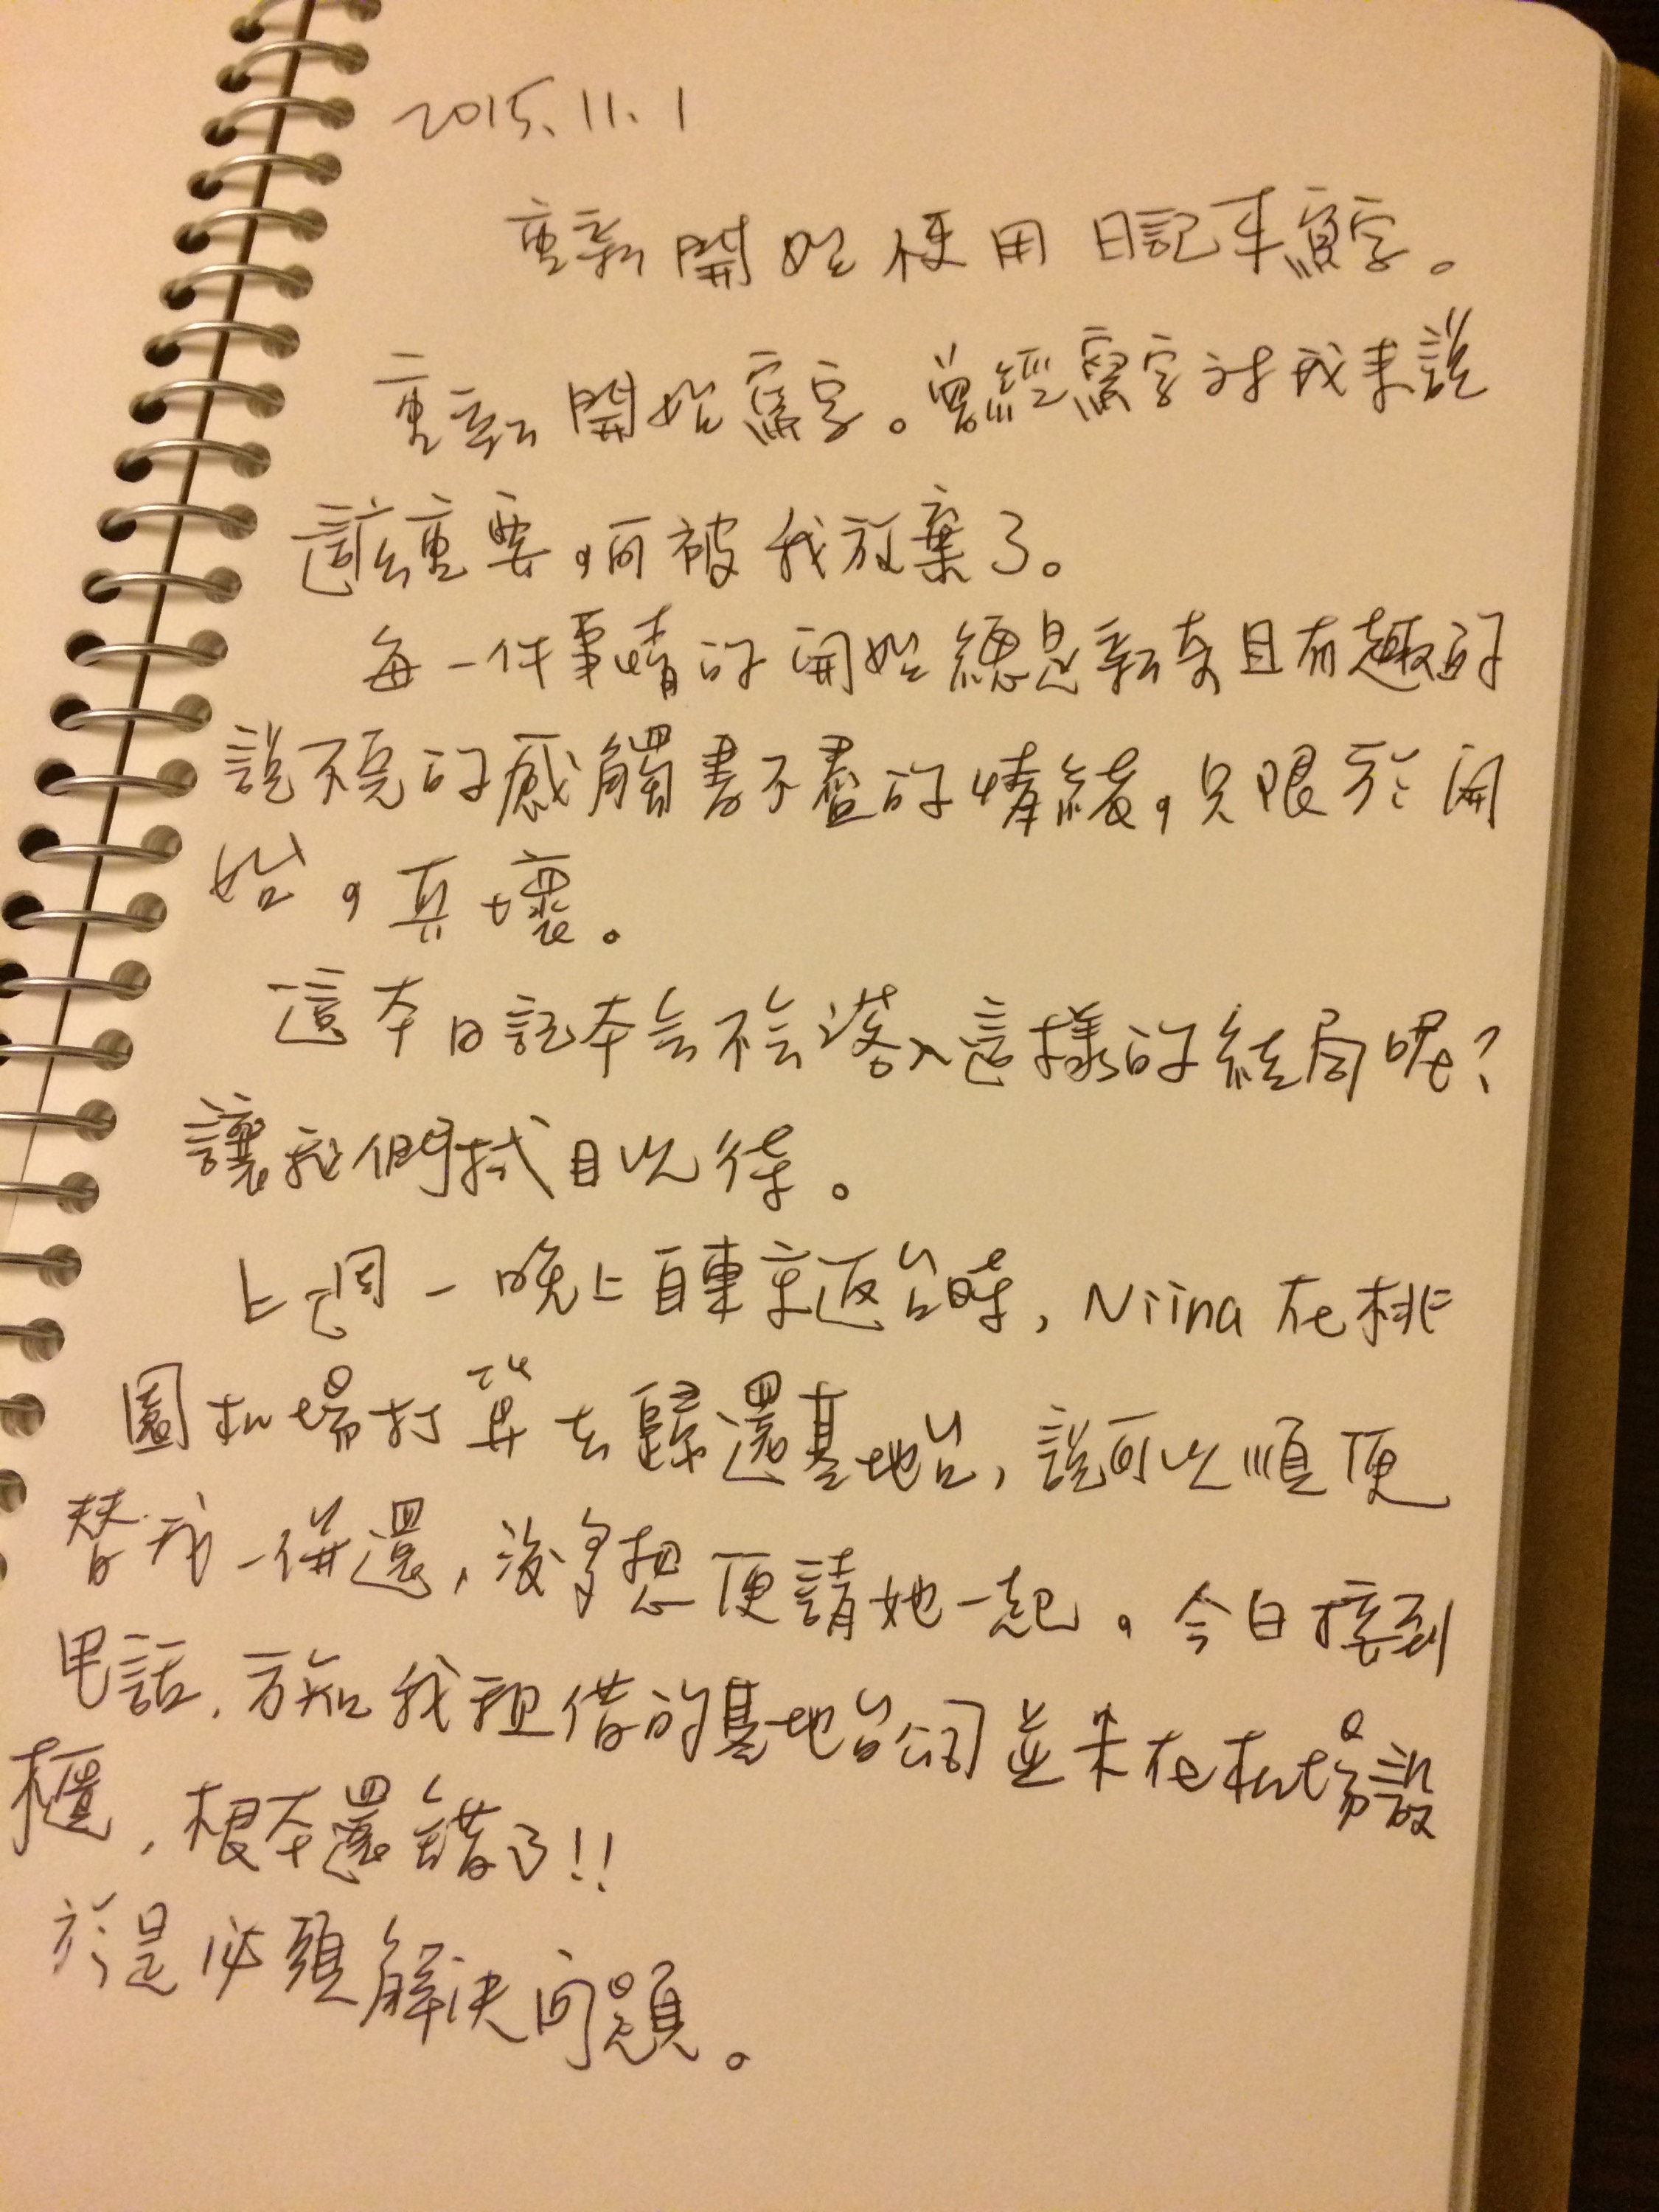 2015.11.1
重新開始使用日記來寫字。
重新開始寫字。曾經寫字對我來說
這麼重要，而被我放棄了。
每一件事情的開始總是新奇且有趣的
說不完的感觸書不盡的情緒，只限於開
始，真壞。
這本日記本會不會落入這樣的結局呢？
讓我們拭目以待。
上週一晚上自東京返台時，Niina在桃
園机場打算去歸還基地台，說可以順便
替我一併還，沒多想便請她一起，今日接到
電話，方知我租借的基地台公司並未在机場設
櫃，根本還錯了!!
於是必須解決問題。